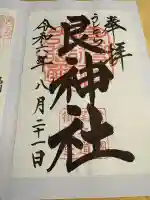 奉拝
うしとら
艮神社
令和六年八月二十一日